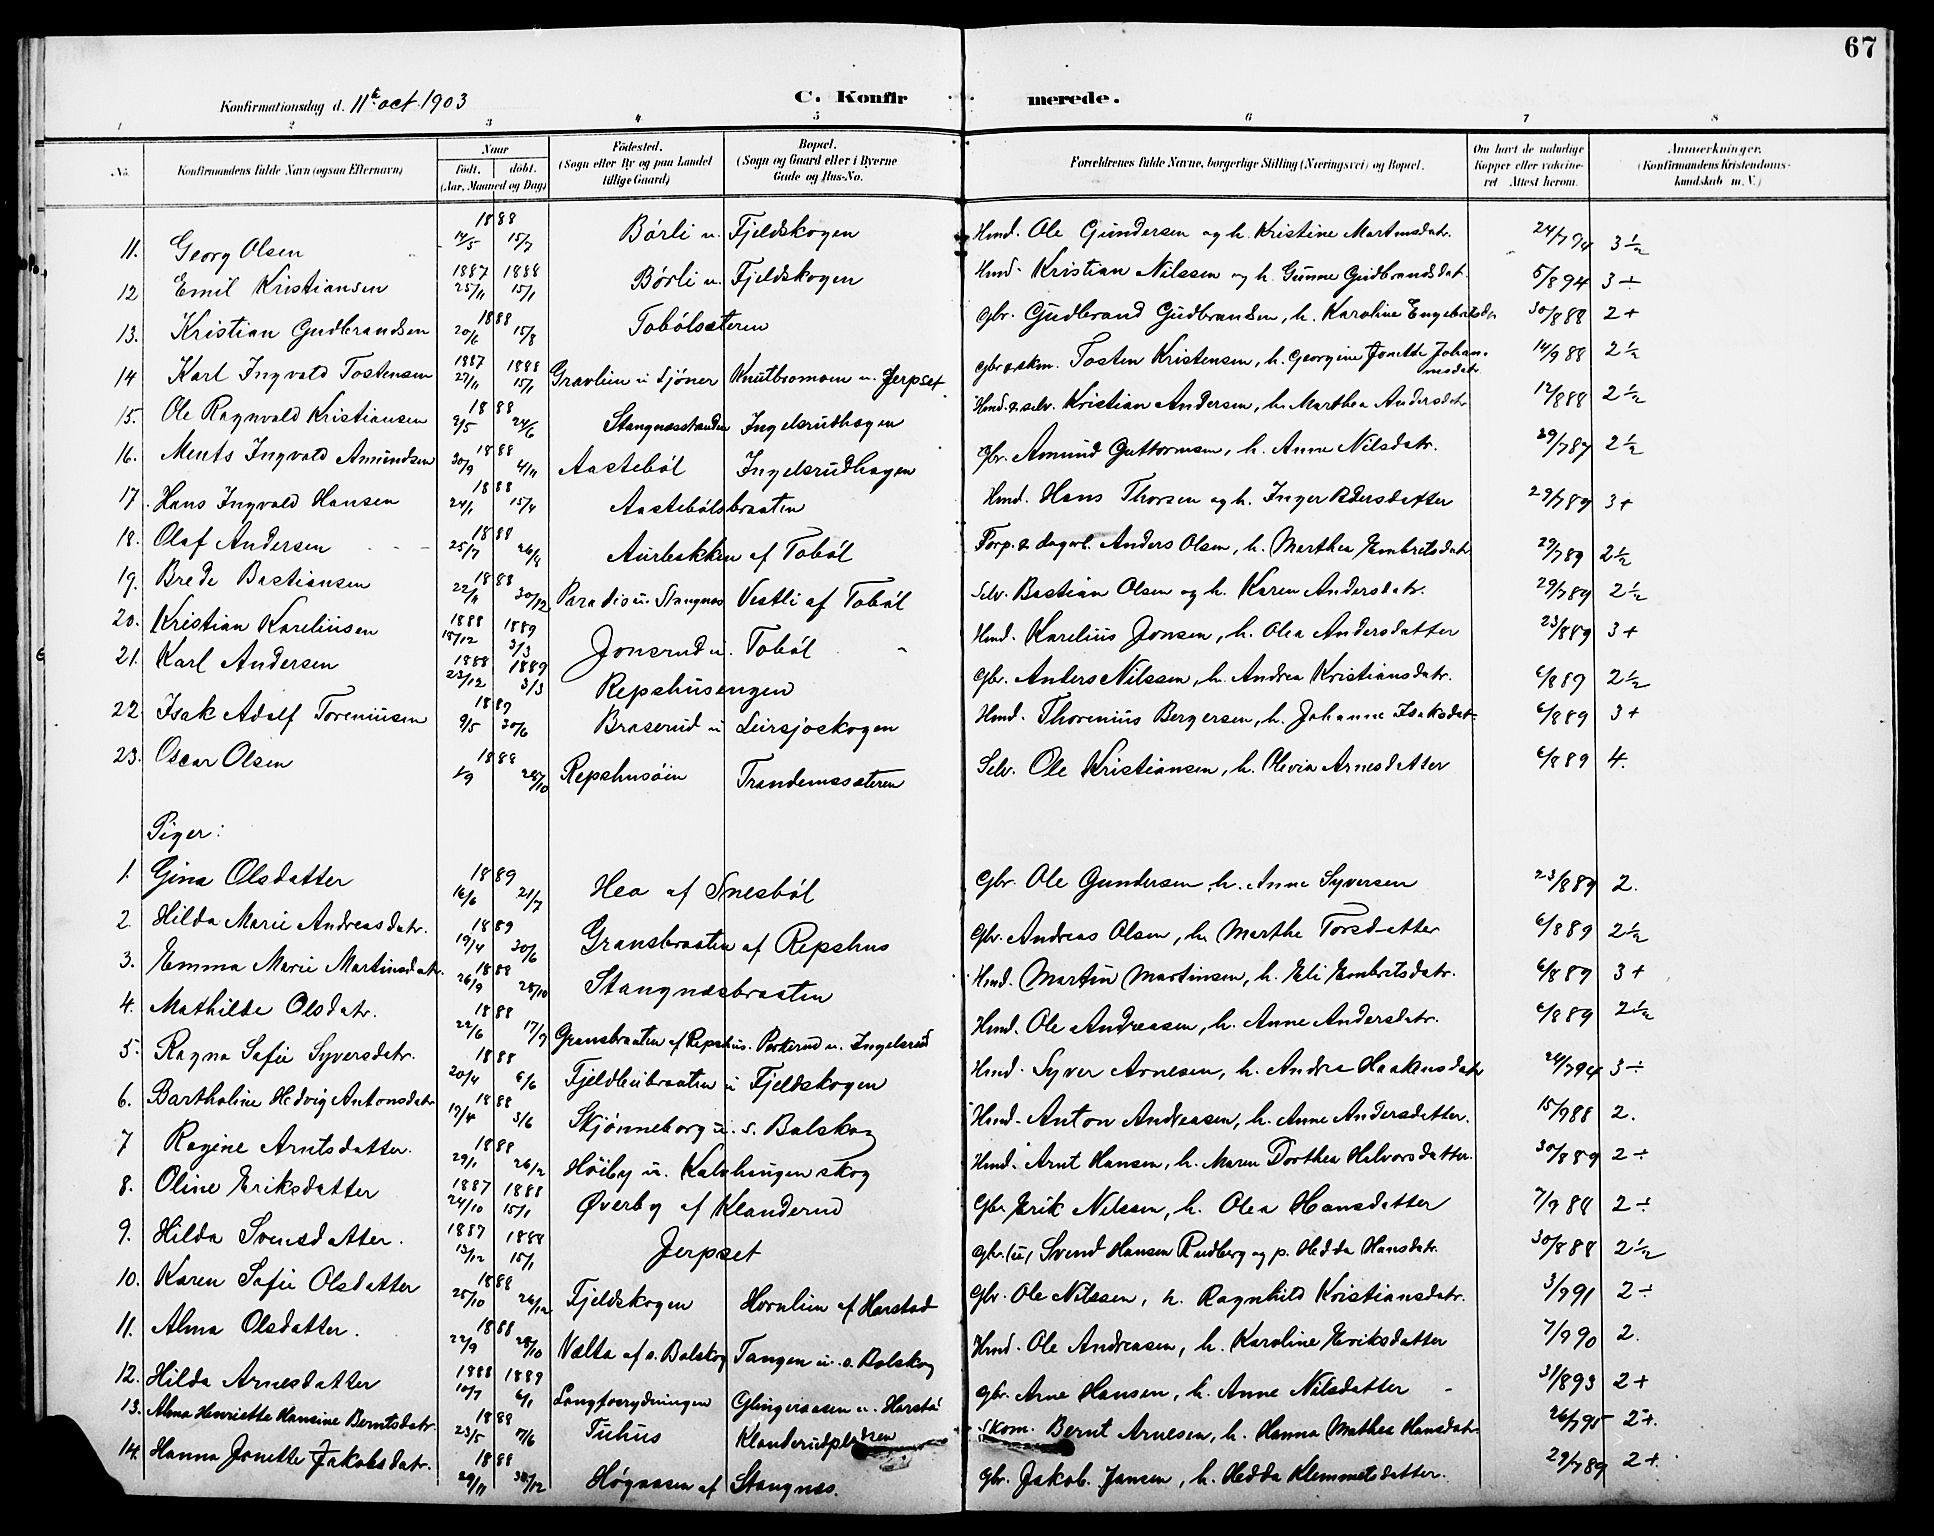 67
Konfirmationsdag d. 11te oct. 1903 C. Konfirmerede.
1 2 3 4 5 6 7 8
No. Konfirmandens fulde Navn (ogsaa Efternavn) Naar født. døbt. (Aar, Maaned og Dag) Fødested. (Sogn eller By og paa Landet tillige Gaard) Bopæl. (Sogn og Gaard eller i Byerne Gade og Hus-No. Forældrenes fulde Navne, borgerlige Stilling (Næringsvei) og Bopæl. Om havt de naturlige Kopper eller vaccineret Attest herom. Anmærkninger. (Konfirmandens Kristendomskundskab m. V.)
11. Georg Olsen 1888 14/5 15/7 Børli u. Fjeldskogen Hmd. Ole Gundersen og h. Kristine Martinsdatr. 24/7 94 3 1/2
12 Emil Kristiansen 1887 25/11 1888 15/1 Børli u. Fjeldskogen Hmd. Kristian Nilssen og h. Gunne Gudbrandsdat. 5/8 94 3 ÷
13. Kristian Gudbrandsen 1888 20/6 15/8 Tobølsæteren Gbr. Gudbrand Gudbrandsen, h. Karoline Engebretsdr 30/8 88 2 +
14 Karl Ingvald Tostensen 1887 27/11 1888 15/1 Gravlien u Sjöner Knutbromoen u. Jerpset Gbr. & skm. Tosten Kristensen, h. Georgine Jonette Johannesdatr 14/9 88 2 1/2
15. Ole Ragnvald Kristiansen 1888 2/5 24/6 Stangnæsstranden Ingelsrudhagen Hmd. & selv. Kristian Andersen, h. Marthea Andersdatr 17/8 88 2 1/2
16. Ments Ingvald Amundsen 1888 30/9 4/11 Aastebøl Ingelsrudhagen Gbr. Amund Guttormsen, h. Anne Nilsdatr. 29/7 87 2 1/2
17. Hans Ingvald Hansen 1888 24/1 15/4 Aastebølsbraaten Hmd. Hans Thorsen og h. Inger Pedersdatter 29/7 89 3 +
18. Olaf Andersen 1888 25/7 26/8 Aurbakken af Tobøl Forp. & dagarb. Anders Olsen, h. Marthea Embretsdatr 29/7 89 2 1/2
19. Brede Bastiansen 1888 22/11 30/12 Paradis u. Stangnes Vestli af Tobøl Selv. Bastian Olsen og h. Karen Andersdatr. 29/7 89 2 1/2
20. Kristian Kareliusen 1888 15/12 1889 3/3 Jonsrud u. Tobøl Hmd. Karelius Jonsen, h. Olea Andersdatter 23/8 89 3 +
21. Karl Andersen 1888 23/12 1889 3/3 Repshusengen Gbr. Anders Nilssen, h. Andrea Kristiansdatr. 6/8 89 2 1/2
22 Isak Adolf Toreniusen 1889 9/5 30/6 Braserud u Leirsjøskogen Hmd. Thorenius Bergersen, h. Johanne Isaksdatr 6/8 89 3 +
23. Oscar Olsen 1888 1/9 28/10 Repshusøien Trandemssæteren Selv. Ole Kristiansen, h. Olivia Arnesdatter 6/8 89 4.
Piger:
1. Gina Olsdatter 1889 16/6 21/7 Hea af Snesbøl Gbr. Ole Gundersen, h. Anne Syversen 23/8 89 2.
2. Hilda Marie Andreasdatr. 1889 19/4 30/6 Gransbraaten af Repshus Gbr. Andreas Olsen, h. Marthe Torsdatter 6/8 89 2 1/2
3. Emma Marie Martinsdatr. 1888 26/9 28/10 Stangnæsbraaten Hmd. Martin Martinsen, h. Eli Embretsdatr. 6/8 89 3 +
4. Mathilde Olsdatr. 1888 22/6 17/7 Gransbraaten af Repshus. Perkerud u. Ingelsrud Hmd. Ole Andreasen, h. Anne Andersdatr. 6/8 89 2 1/2
5. Ragna Sofie Syversdatr. 1888 20/4 6/6 Fjeldheibraaten u Fjeldskogen Hmd. Syver Arnesen, h. Andrea Haakensdatr 24/7 94 3 ÷
6. Bartholine Hedvig Antonsdatr 1888 17/4 3/6 Skjønneborg u. s. Bolskog Hmd. Anton Andreasen, h. Anne Andersdatter. 15/9 88 2.
7 Ragine Arntsdatter. 1888 29/1 26/2 Høiby u. Kalvhaugen skog Hmd. Arnt Hansen, h. Maren Dorthea Halvorsdatter. 30/8 89 2 ÷
8. Oline Eriksdatter 1887 24/10 1888 15/1 Øverby af Klanderud Gbr Erik Nilssen, h. Olea Hansdatter 7/9 88 2 ÷
9. Hilda Svensdatter. 1887 13/12 1888 15/1 Jerpset Gbr. (u) Svend Hansen Rudberg og p. Hedda Hansdatr. 30/8 88 2 1/2
10. Karen Sofie Olsdatter 1888 25/10 26/12 Fjeldskogen Hornlien af Harstad Gbr. Ole Nilssen, h. Ragnhild Kristiansdatr. 3/7 91 2 ÷
11. Alma Olsdatter. 1888 22/9 28/10 Vælta af s. Bolskog Tangen u. s. Bolskog Hmd. Ole Andreasen, h. Karoline Eriksdatter 7/9 90 2.
12. Hilda Arnesdatter 1888 10/7 1889 6/1 Langforrydningen Glingeraasen u. Harstad Gbr. Arne Hansen, h. Anne Nilsdatter 31/8 93 2 +
13. Alma Henriette Hansine Berntsdatr. 1888 23/5 7/6 Tuhus Klanderudpladsen Skom. Bernt Arnesen, h. Hanna Mathea Hansdatr. 26/7 95 2 +.
14. Hanna Jonette Jakobsdatr. 1888 29/11 30/12 Høgaasen af Stangnæs. Gbr. Jakob Jansen, h. Hedda Klemmetsdatter. 29/7 89 2 +